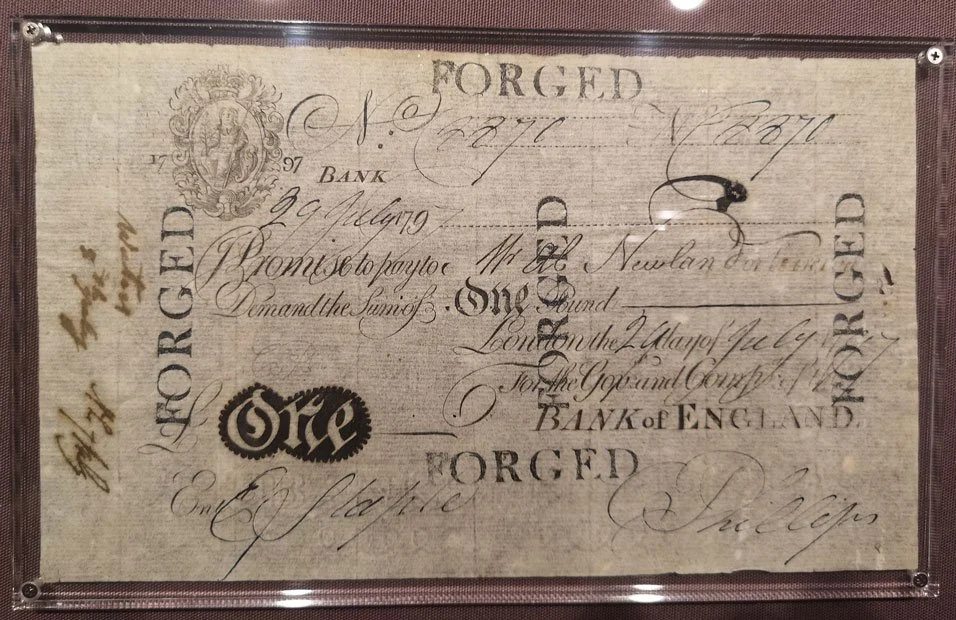 FORGED
No 2270 No 2270
17 97
BANK
29 July 1797
I Promise to pay to Mr Ab Newland or bearer on
Demand the Sum of One Pound
London the 29 day of July 1797
For the Govr and Compa of the
BANK of ENGLAND.
£ One
FORGED
Ent
Phillips
FORGED
FORGED
FORGED